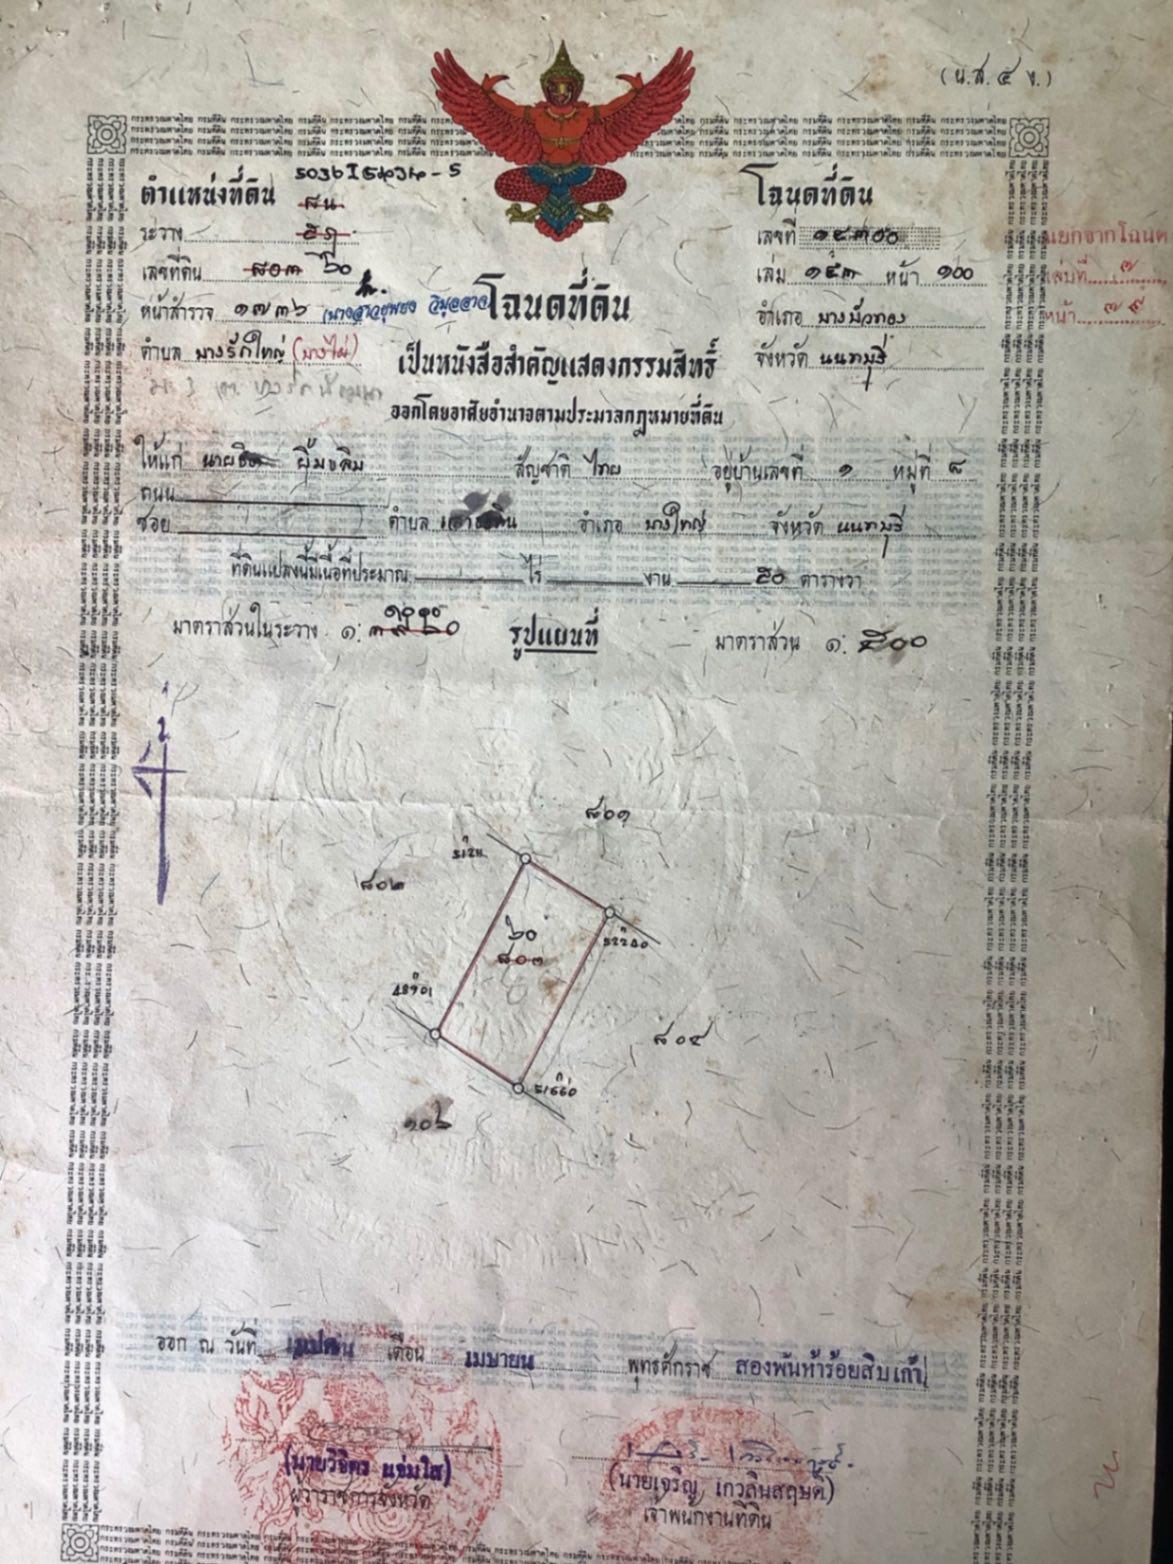 (น.ส. ๔ ง.)
ตำแหน่งที่ดิน
ระวาง
เลขที่ดิน ๘๐๓ ๖๐
หน้าสำรวจ ๑๗๓๖
ตำบล บางรักใหญ่ (บางไผ่)
โฉนดที่ดิน
เลขที่
เล่ม ๑๔๓ หน้า ๑๐๐
อำเภอ บางบัวทอง
จังหวัด นนทบุรี
แยกจากโฉนด
เล่มที่ ๗
หน้า ๗๙
โฉนดที่ดิน
เป็นหนังสือสำคัญแสดงกรรมสิทธิ์
ออกโดยอาศัยอำนาจตามประมวลกฎหมายที่ดิน
ให้แก่ นาย ยิ้มขลิบ สัญชาติ ไทย อยู่บ้านเลขที่ ๑ หมู่ที่ ๘
ถนน
ซอย ตำบล อำเภอ บางใหญ่ จังหวัด นนทบุรี
ที่ดินแปลงนี้มีเนื้อที่ประมาณ ไร่ งาน ๕๐ ตารางวา
มาตราส่วนในระวาง ๑: ๑๐๐๐ รูปแผนที่ มาตราส่วน ๑: ๕๐๐
น
๘๐๑
๘๐๒
๖๐
๘๐๓
๘๐๔
๑๐๖
ออก ณ วันที่ เดือน เมษายน พุทธศักราช สองพันห้าร้อยสิบเก้า
(นายวิจิตร แจ่มใส)
ผู้ว่าราชการจังหวัด
(นายเจริญ เกวลินสฤษดิ์)
เจ้าพนักงานที่ดิน